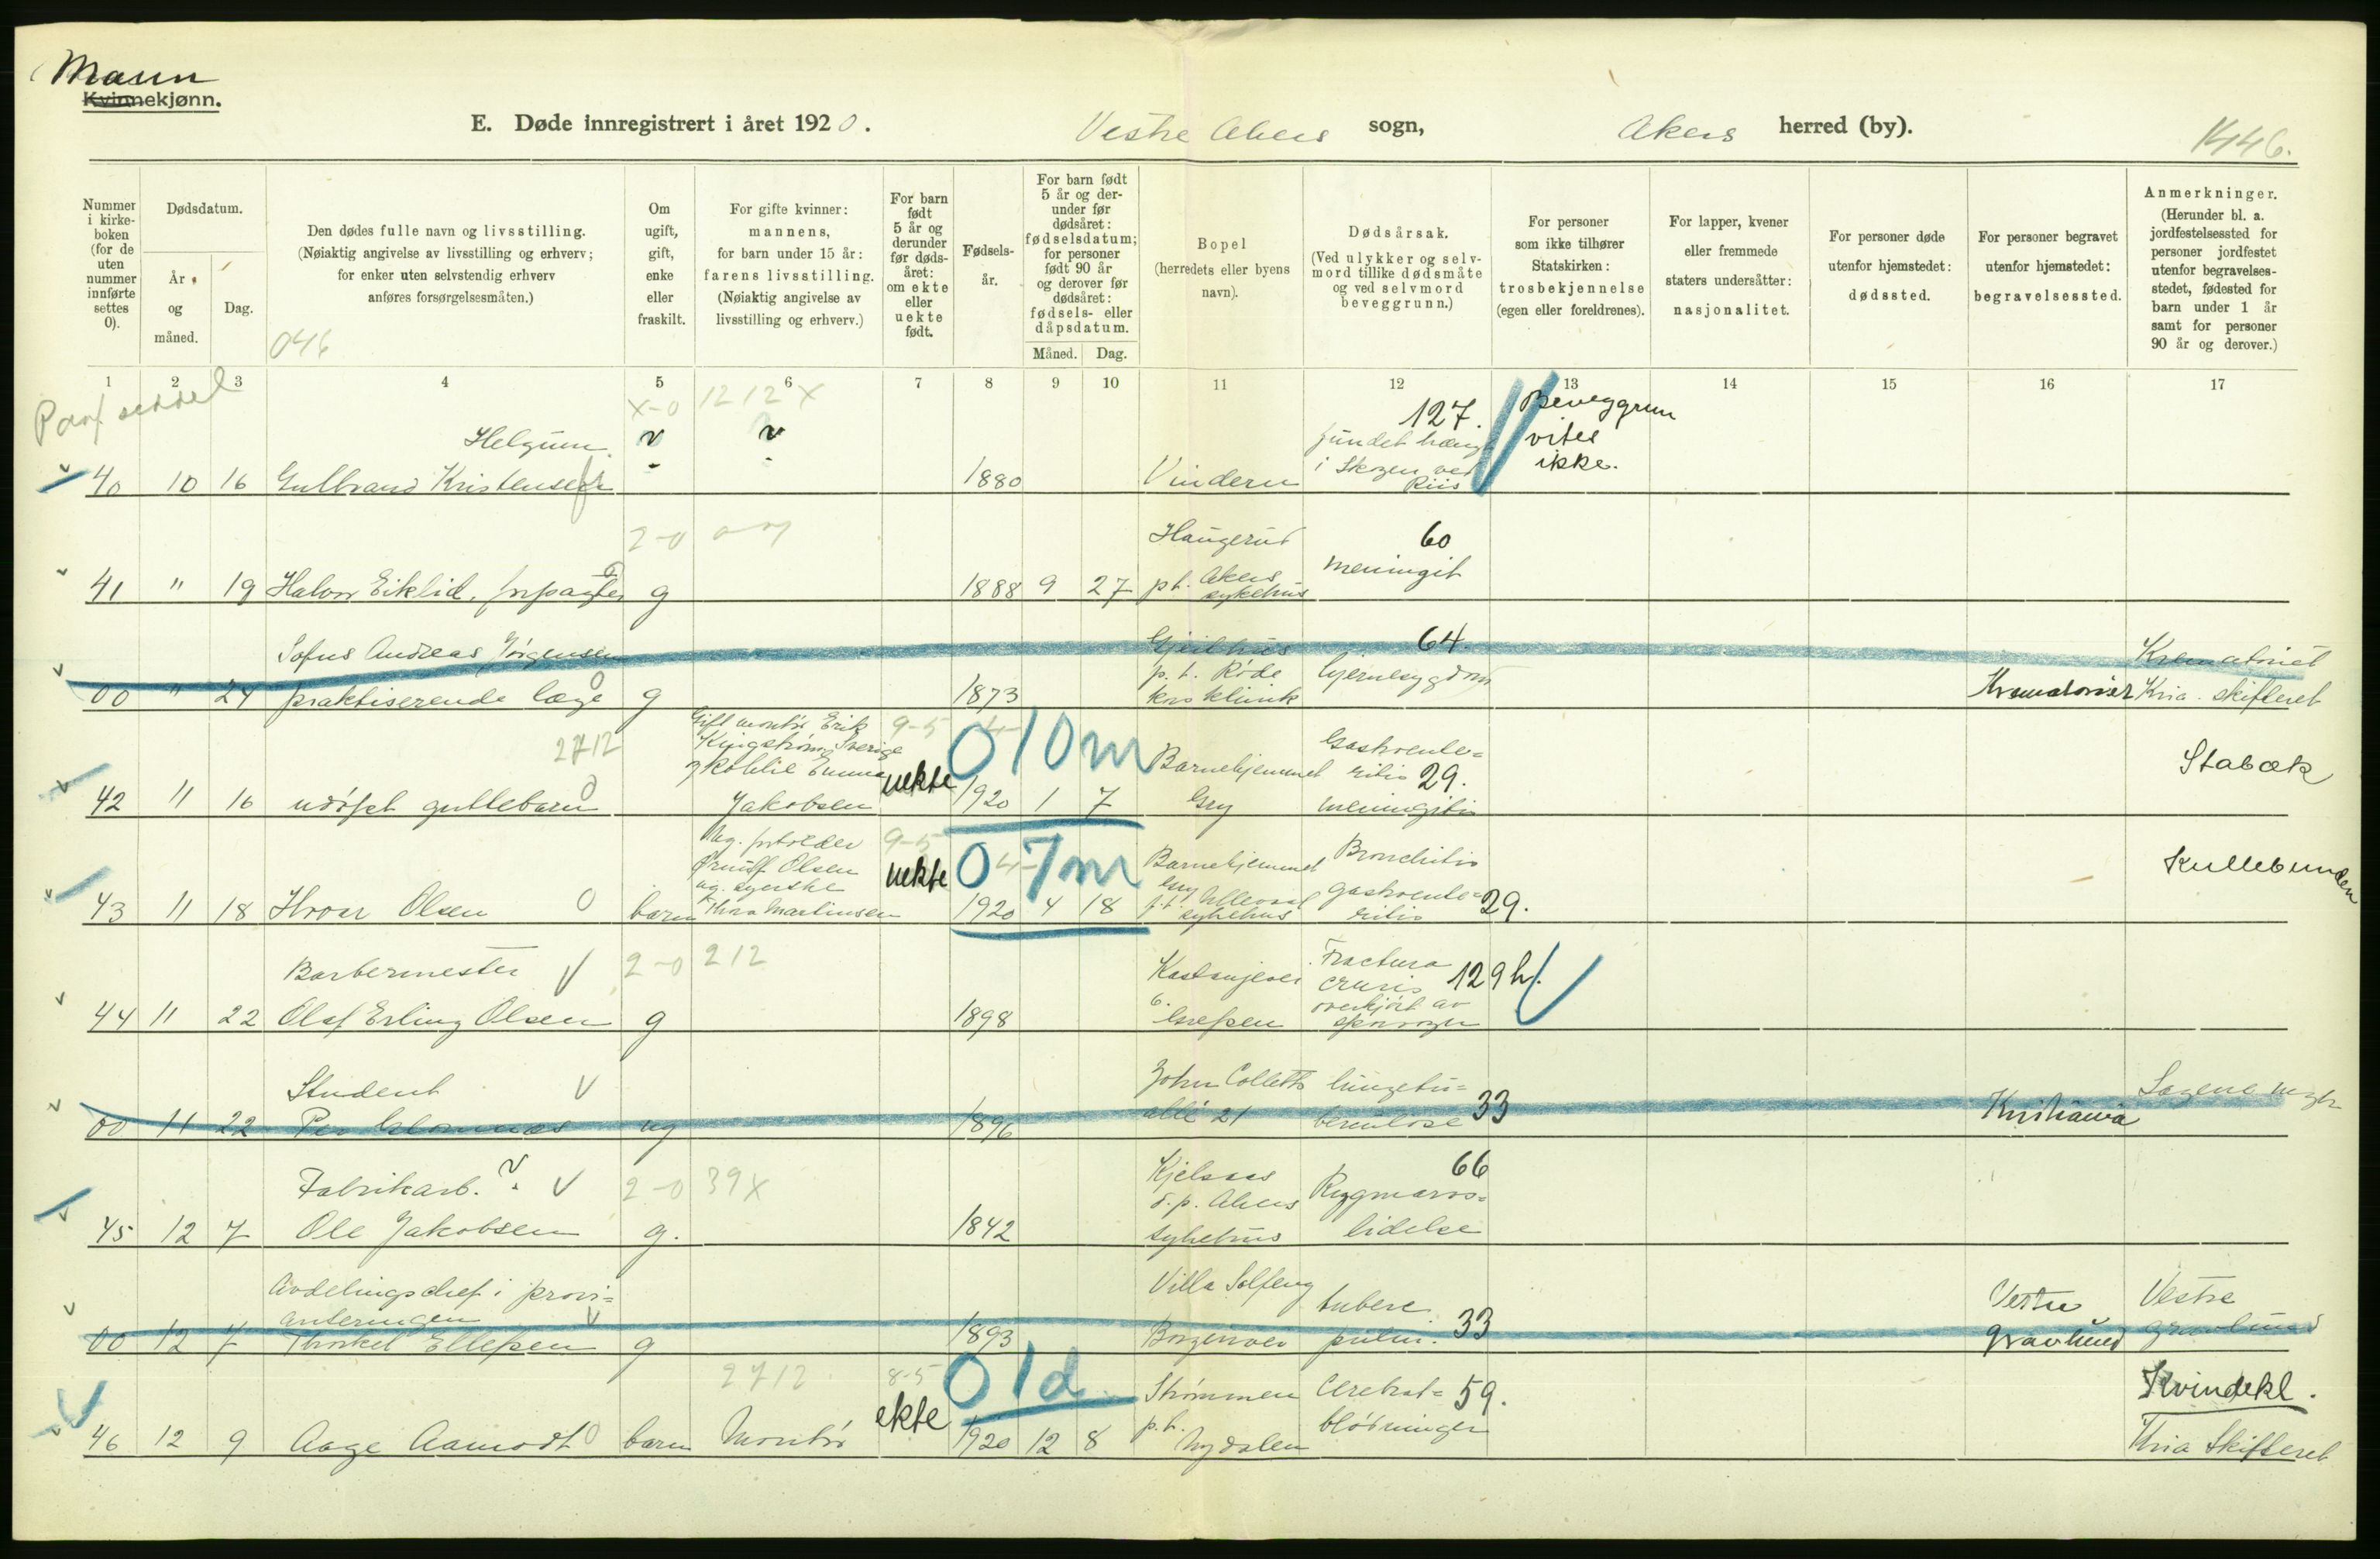 Mann
Kvinnekjønn.
E. Døde innregistrert i året 1920.
Vestre Akers sogn,
Akers herred (by).
1446.
Nummer i kirkeboken (for de uten nummer innførte settes 0).
Dødsdatum.
År og måned.
Dag.
Den dødes fulle navn og livsstilling.
(Nøiaktig angivelse av livsstilling og erhverv;
for enker uten selvstendig erhverv
anføres forsørgelsesmåten.)
046
Om ugift, gift, enke eller fraskilt.
For gifte kvinner:
mannens,
for barn under 15 år:
farens livsstilling.
(Nøiaktig angivelse av
livsstilling og erhverv.)
For barn født 5 år og derunder før dødsåret: om ekte eller uekte født.
Fødselsår.
For barn født 5 år og derunder før dødsåret: fødselsdatum; for personer født 90 år og derover før dødsåret: fødsels- eller dåpsdatum.
Måned.
Dag.
Bopel
(herredets eller byens
navn).
Dødsårsak.
(Ved ulykker og selvmord tillike dødsmåte og ved selvmord beveggrunn.)
For personer
som ikke tilhører
Statskirken:
trosbekjennelse
(egen eller foreldrenes).
For lapper, kvener
eller fremmede
staters undersåtter:
nasjonalitet.
For personer døde
utenfor hjemstedet:
dødssted.
For personer begravet
utenfor hjemstedet:
begravelsessted.
Anmerkninger.
(Herunder bl. a.
jordfestelsessted for
personer jordfestet
utenfor begravelsesstedet, fødested for
barn under 1 år
samt for personer
90 år og derover.)
1 2 3 4 5 6 7 8 9 10 11 12 13 14 15 16 17
x-0 1212 x
Helgum
40 10 16 Gulbrand Kristensen 1880 Vindern
127.
fundet hængt
i Skogen ved
Riis
Beveggrun
vites
ikke.
2-0
41 " 19 Halvor Eiklid, forpagter g 1888 9 27
Haugerud
pt. Akers
sykehus
60
meningit
Sofus Andreas Jørgensen
00 " 24 praktiserende læge g 1873
p. t. Røde
kors klinik
64.
hjernesygdom
Krematoriet
Krematoriet
Kria. skifteret
2712
42 11 16 udøpt guttebarn
Gift montør Erik
Sverige
Emma
Jakobsen
9-5
uekte
010m
1920 1 7
Barnehjemmet
Gry
Gastroente=
ritis 29.
meningitis
Stabæk
43 11 18 Hroar Olsen barn
Olsen
ug. syerske
Thora Martinsen
9-5
uekte
0 7m
1920 4 18
Barnehjemmet
Gry
p.t. Ullevaal
sykehus
Bronchitis
gastroente=
ritis 29.
Kullebunden
Barbermester
2-0 212
44 11 22 Olaf Erling Olsen g 1898
Kastanjevei
6.
Grefsen
Fractura
cruris 129 h.
overkjørt av
sporvogn
Student
00 11 22 Per ug 1896
John Colletts
allé 21
lungetu=
berculose 33
Kristiania
Sagene
Fabrikarb.
2-0 39x
45 12 7 Ole Jakobsen g. 1842
Kjelsaas
d. p. Akers
sykehus
66
Rygmarvs=
lidelse
Avdelingschef i provi=
anteringen
00 12 7 Thorkel Ellefsen g 1893
Villa Solfeng
Borgenvei
tuberc.
pulm. 33
Vestre
gravlund
Vestre
gravlund
2712 8-5
46 12 9 Aage Aamodt barn Montør ekte
01d
1920 12 8
Strømmen
p.t.
Nydalen
Cerebral= 59.
blødninger
Kvindekl.
Kria Skifteret